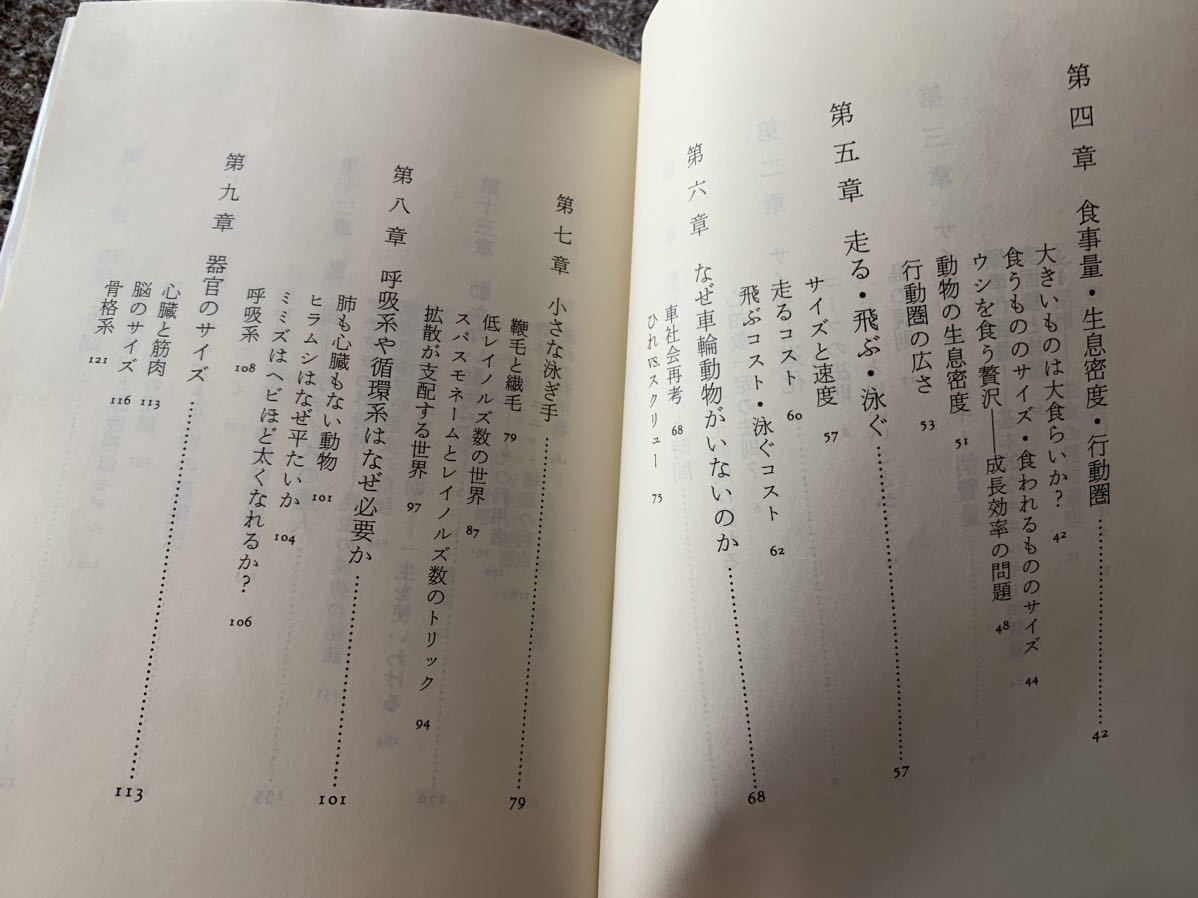 第四章 食事量・生息密度・行動圏……42
大きいものは大食らいか? 42
食うもののサイズ・食われるもののサイズ 44
ウシを食う贅沢――成長効率の問題 48
動物の生息密度 51
行動圏の広さ 53
第五章 走る・飛ぶ・泳ぐ……57
サイズと速度 57
走るコスト 60
飛ぶコスト・泳ぐコスト 62
第六章 なぜ車輪動物がいないのか……68
車社会再考 68
ひれvs.スクリュー 75
第七章 小さな泳ぎ手……79
鞭毛と繊毛 79
低レイノルズ数の世界 87
スパスモネームとレイノルズ数のトリック 94
拡散が支配する世界 97
第八章 呼吸系や循環系はなぜ必要か……101
肺も心臓もない動物 101
ヒラムシはなぜ平たいか 104
ミミズはヘビほど太くなれるか? 106
呼吸系 108
第九章 器官のサイズ……113
心臓と筋肉 113
脳のサイズ 116
骨格系 121